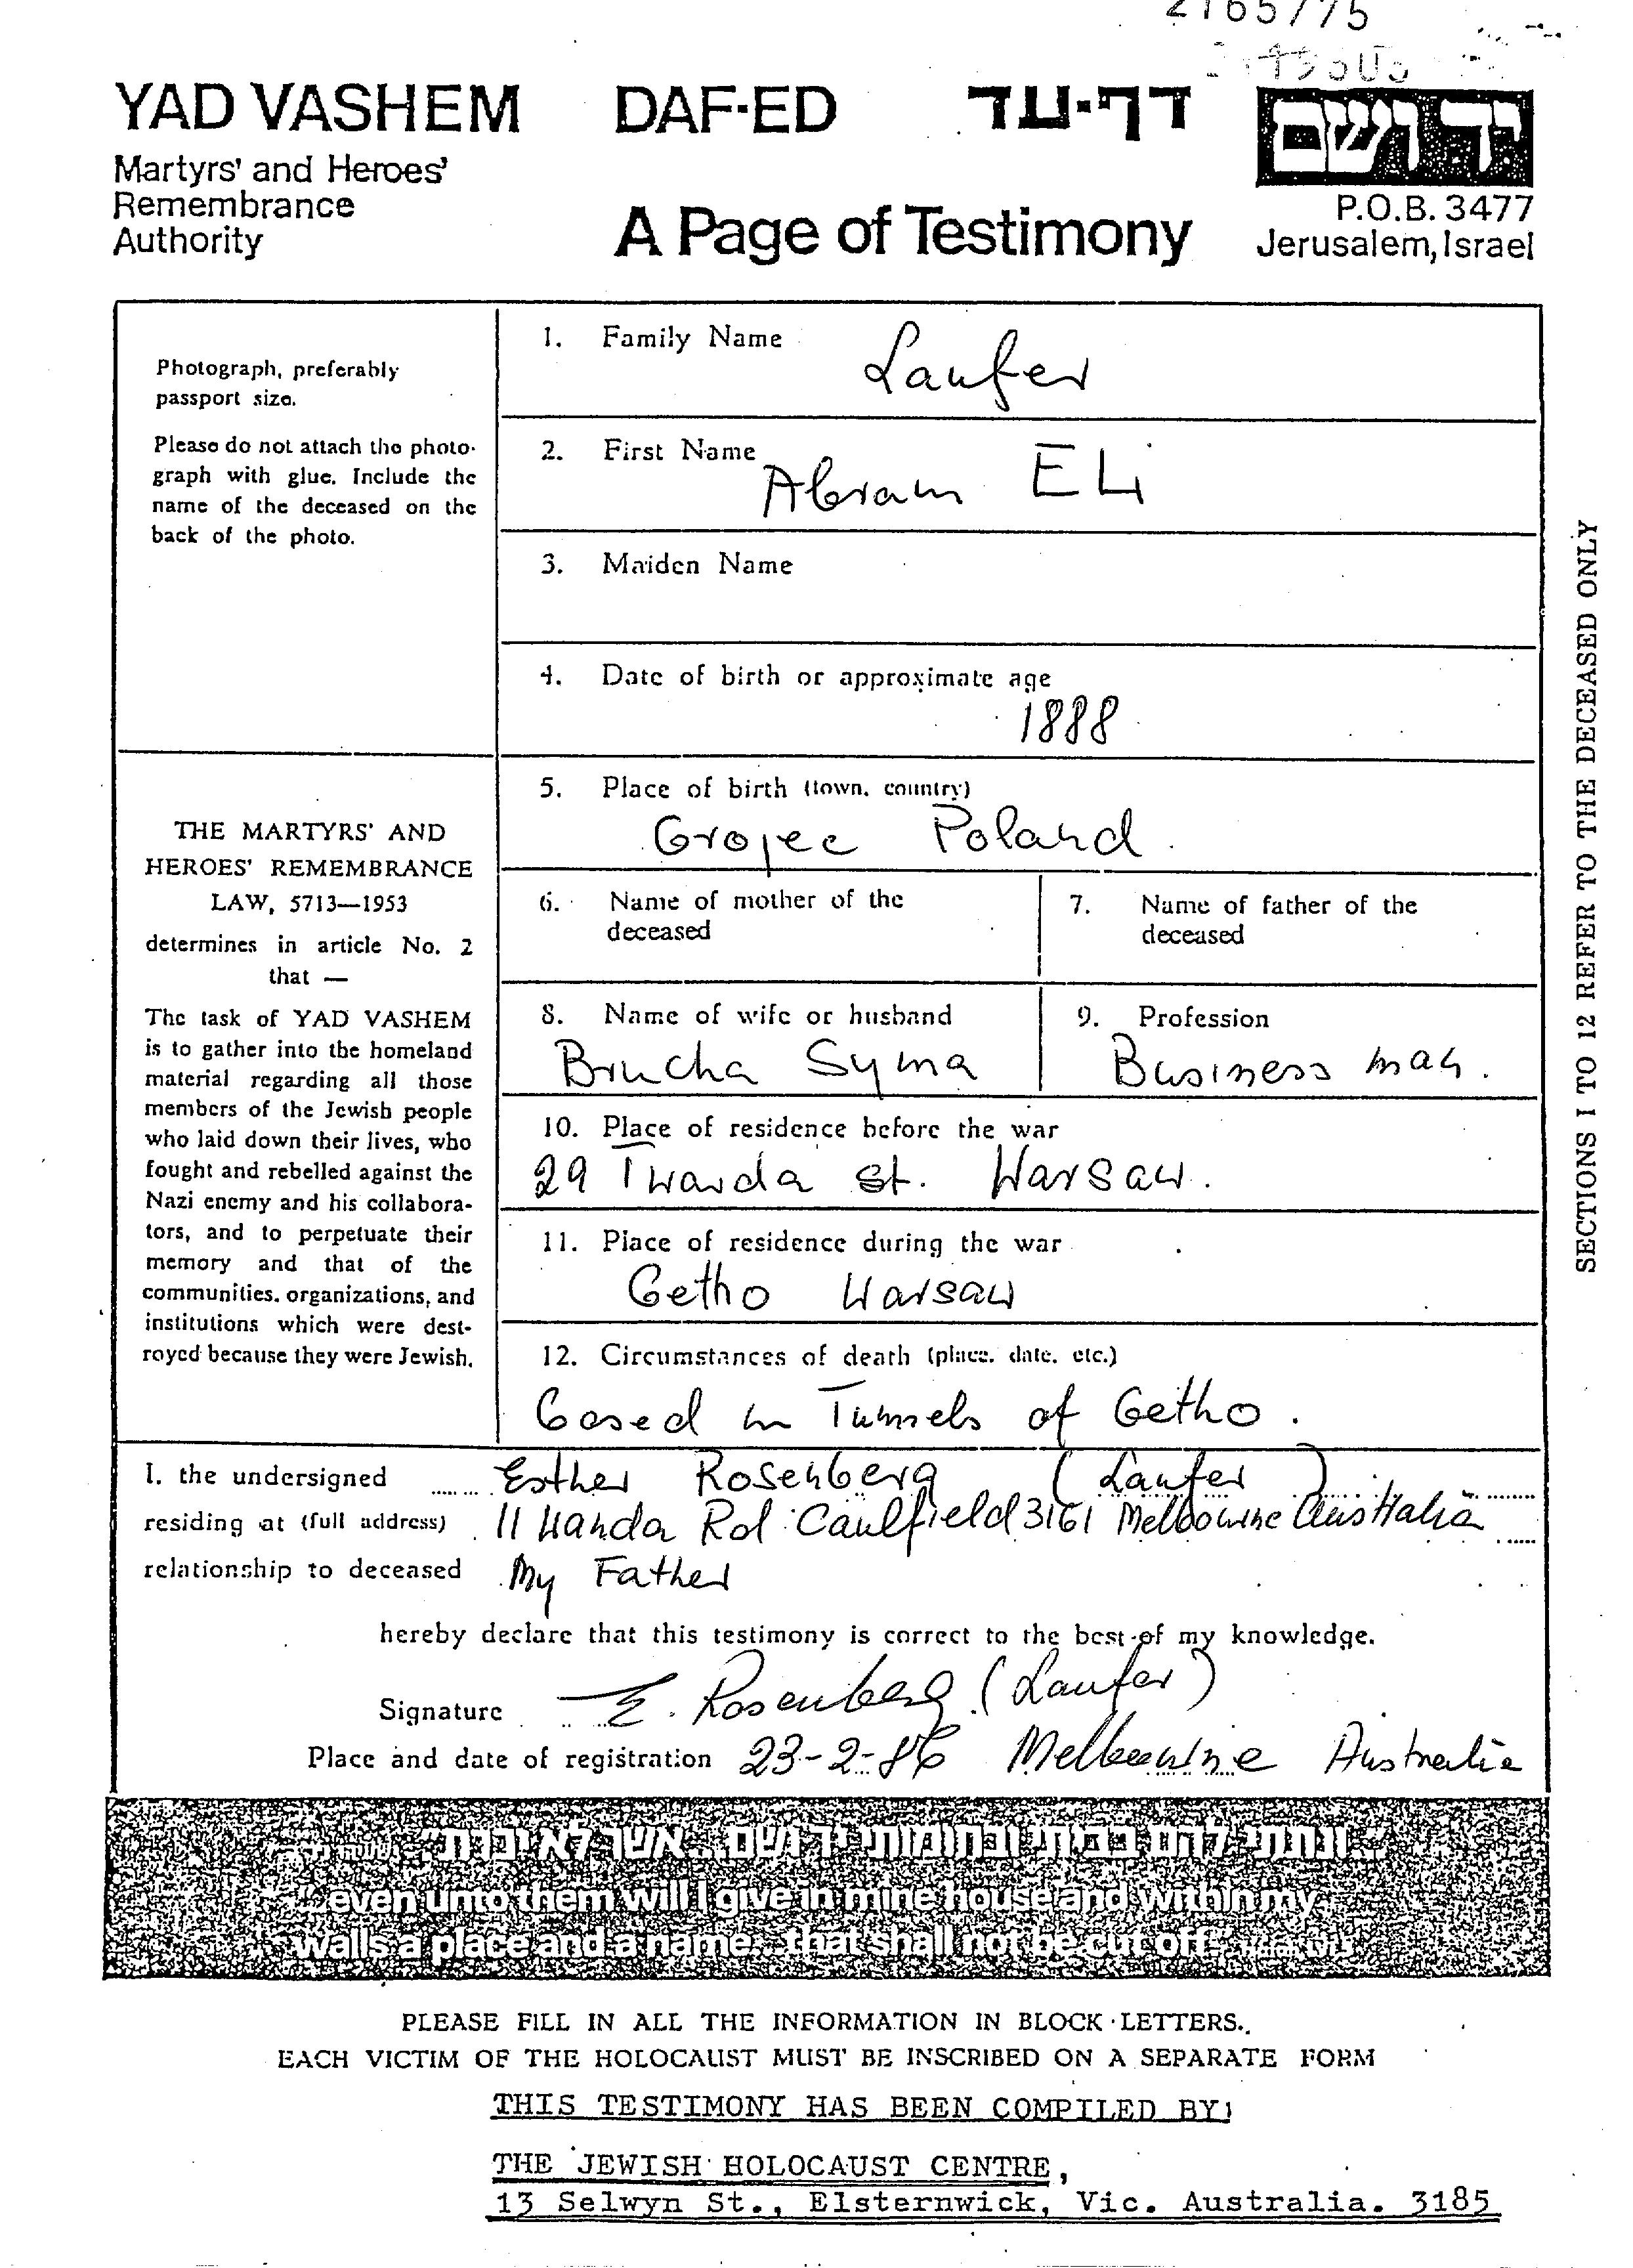 2165/75
YAD VASHEM DAF-ED דף-עד
יד ושם
Martyrs' and Heroes'
Remembrance
Authority
A Page of Testimony
P.O.B. 3477
Jerusalem, Israel
Photograph, preferably
passport size.
Please do not attach the photo-
graph with glue. Include the
name of the deceased on the
back of the photo.
THE MARTYRS' AND
HEROES' REMEMBRANCE
LAW, 5713—1953
determines in article No. 2
that —
The task of YAD VASHEM
is to gather into the homeland
material regarding all those
members of the Jewish people
who laid down their lives, who
fought and rebelled against the
Nazi enemy and his collabora-
tors, and to perpetuate their
memory and that of the
communities, organizations, and
institutions which were dest-
royed because they were Jewish.
1. Family Name
Laufer
2. First Name
Abram ELi
3. Maiden Name
4. Date of birth or approximate age
1888
5. Place of birth (town, country)
Grojec Poland
6. Name of mother of the
deceased
7. Name of father of the
deceased
8. Name of wife or husband
Brucha Syma
9. Profession
Business man.
10. Place of residence before the war
29 Twarda St. Warsaw.
11. Place of residence during the war
Getho Warsaw
12. Circumstances of death (place, date, etc.)
Gased in Tunnels of Getho.
SECTIONS 1 TO 12 REFER TO THE DECEASED ONLY
I, the undersigned Esther Rosenberg (Laufer)
residing at (full address) 11 Wanda Rd Caulfield 3161 Melbourne Australia
relationship to deceased My Father
hereby declare that this testimony is correct to the best of my knowledge.
Signature E. Rosenberg (Laufer)
Place and date of registration 23-2-86 Melbourne Australia
...ונתתי להם בביתי ובחומותי יד ושם...אשר לא יכרת
...even unto them will I give in mine house and within my
walls a place and a name...that shall not be cut off.
PLEASE FILL IN ALL THE INFORMATION IN BLOCK LETTERS.
EACH VICTIM OF THE HOLOCAUST MUST BE INSCRIBED ON A SEPARATE FORM
THIS TESTIMONY HAS BEEN COMPILED BY:
THE JEWISH HOLOCAUST CENTRE,
13 Selwyn St., Elsternwick, Vic. Australia. 3185